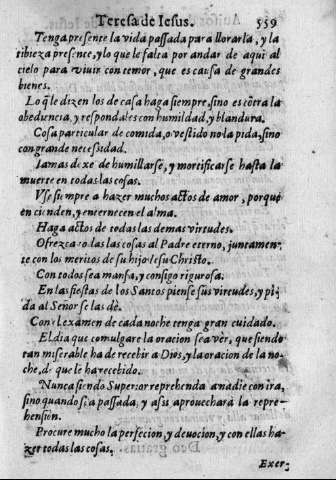 Teresa de Iesus. 559
Tenga presente la vida passada para llorarla, y la
tibieza presente, y lo que le falta por andar de aqui al
cielo para viuir con temor, que es causa de grandes
bienes.
Lo q̃ le dizen los de casa haga siempre, sino es cõtra la
obediencia, y respondales con humildad, y blandura.
Cosa particular de comida, o vestido no la pida, sino
con grande necessidad.
Iamas dexe de humillarse, y mortificarse hasta la
muerte en todas las cosas.
Vse siempre a hazer muchos actos de amor, porque
encienden, y enternecen el alma.
Haga actos de todas las demas virtudes.
Ofrezca todas las cosas al Padre eterno, juntamen-
te con los meritos de su hijo Iesu Christo.
Con todos sea mansa, y consigo rigurosa.
En las fiestas de los Santos piense sus virtudes, y pi-
da al Señor se las dè.
Con el examen de cada noche tenga gran cuidado.
El dia que comulgare la oracion sea vèr, que siendo
tan miserable ha de recebir a Dios, y la oracion de la no-
che, de que le ha recebido.
Nunca siendo Superior reprehenda a nadie con ira,
sino quando sea passada, y assi aprouecharà la repre-
hension.
Procure mucho la perfecion, y deuocion, y con ellas ha-
zer todas las cosas.
Exer-